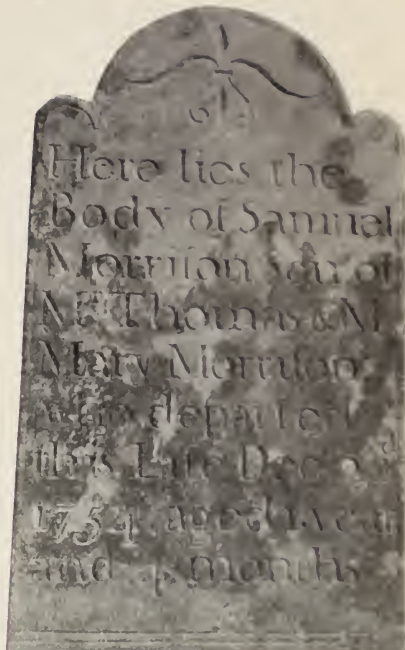 Here lies the
Body of Samuel
Morriſon son of
Mr Thomas & M
Mary Morriſon
who departed
this Life Dec
1754 aged 1 year
and 4 months